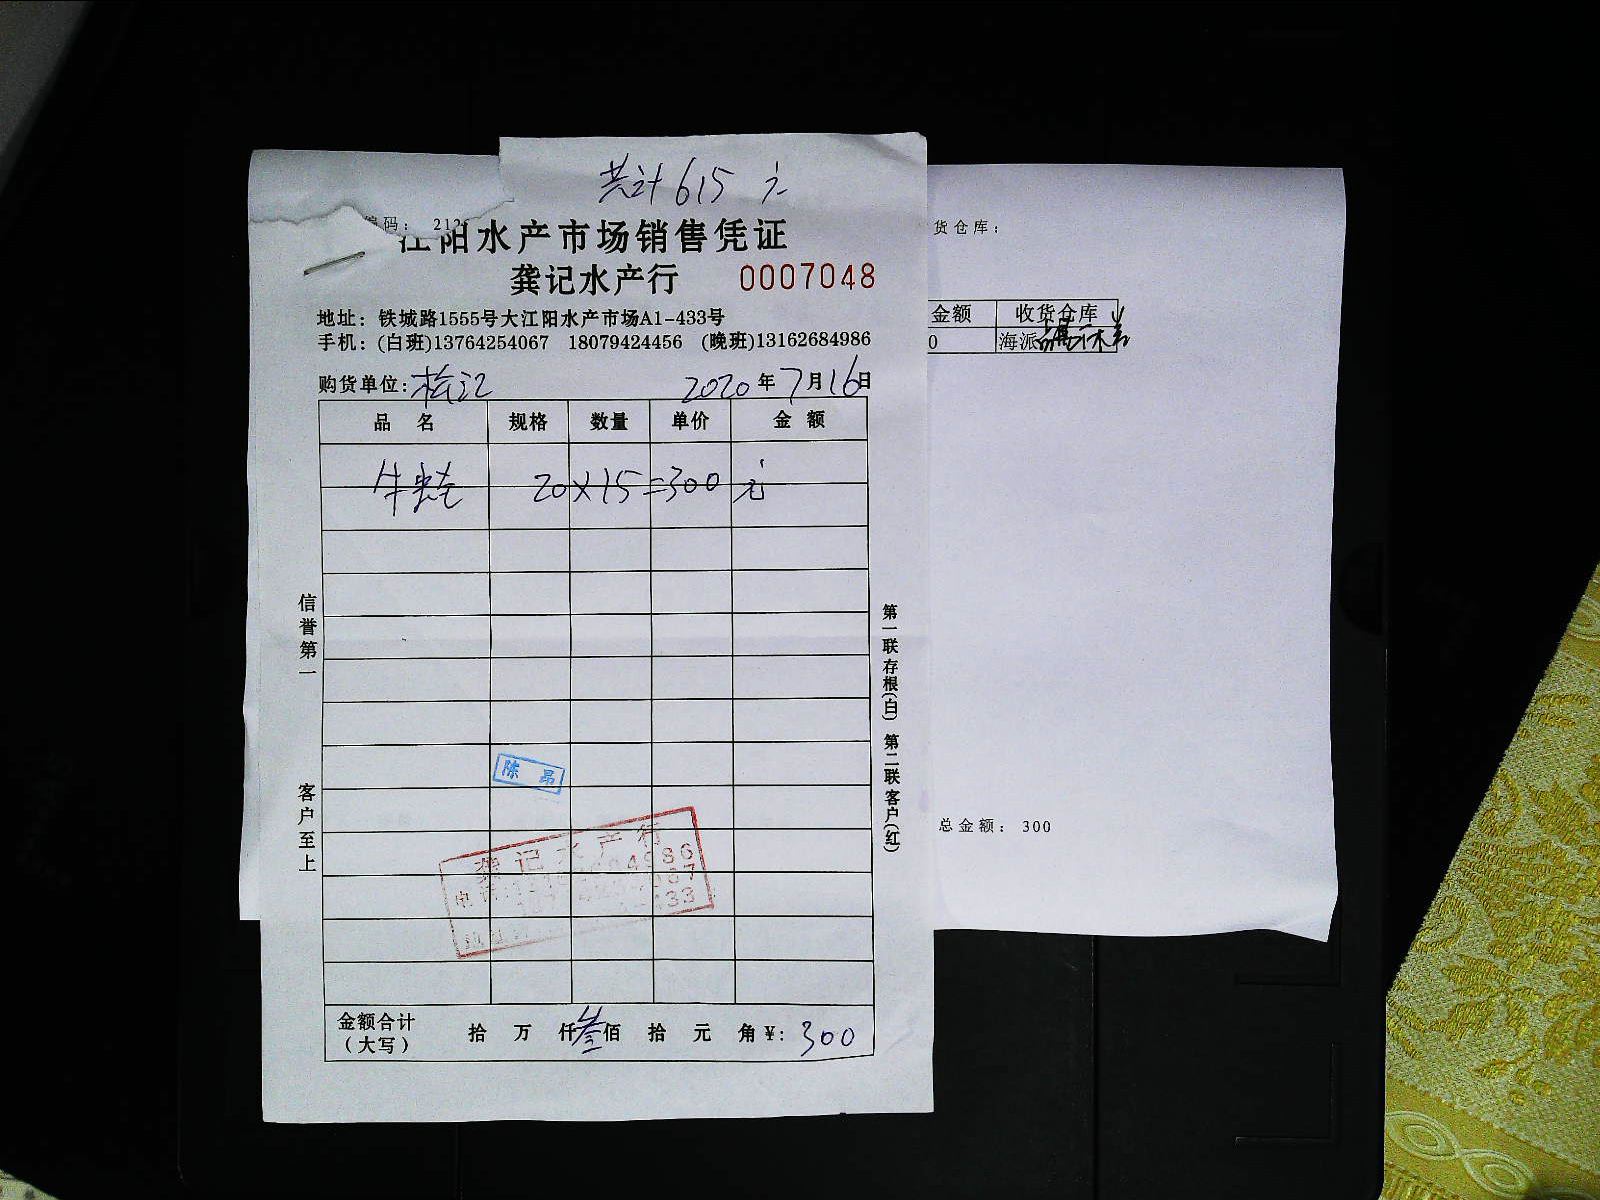 共计615元
编码： 212
江阳水产市场销售凭证
货仓库：
龚记水产行 0007048
地址：铁城路1555号大江阳水产市场A1-433号
手机：(白班)13764254067 18079424456 (晚班)13162684986
金额 收货仓库
0 海派
购货单位：松江 2020年7月16日
品 名 规格 数量 单价 金 额
牛蛙 20×15=300元
信誉第一
客户至上
第一联存根(白) 第二联客户(红)
陈 昂
龚记水产行
总金额： 300
金额合计（大写） 拾 万 仟 叁佰 拾 元 角 ¥：300